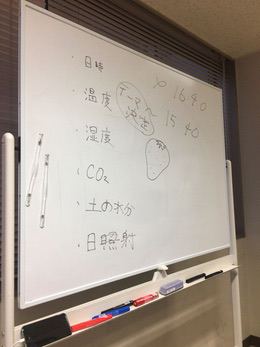 ・日時
・温度
・湿度
・CO₂
・土の水分
・日照射
テーマ
決定
1640
〜1540